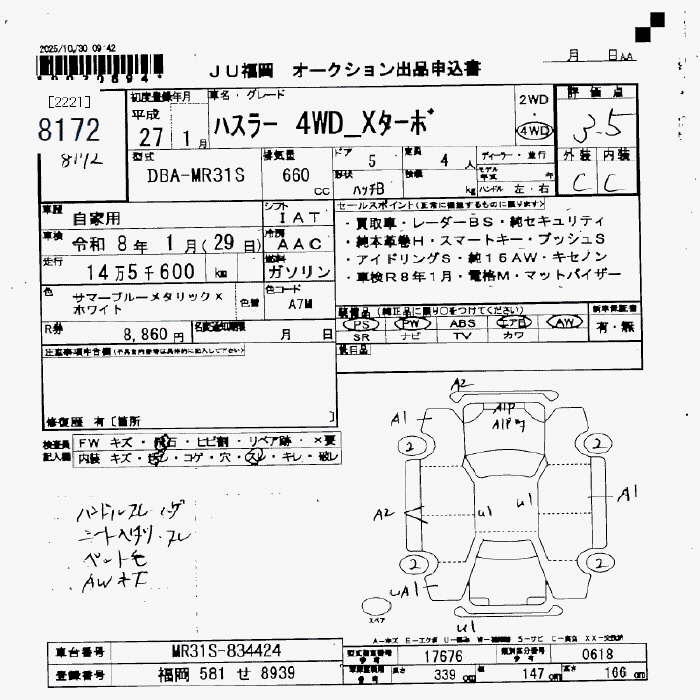 2025/10/30 09:42
月 日
JU福岡 オークション出品申込書
[2221]
8172
8172
初度登録年月
平成
27 1月
車名・グレード
ハスラー 4WD_Xターボ
2WD
4WD
評価点
3.5
外装 内装
C C
型式
DBA-MR31S
排気量
660 cc
ドア 5
形状 ハッチB
定員 4 人
積載 kg
ディーラー・並行
モデル年式 年
ハンドル 左・右
車歴
自家用
シフト
IAT
車検
令和 8年 1月(29日)
冷房
AAC
走行
14万5千600 km
燃料
ガソリン
色
サマーブルーメタリック×
ホワイト
色替
色コード
A7M
R券
8,860円
名変通知期限 月 日
セールスポイント(正常に機能するものに限ります)
・買取車・レーダーBS・純セキュリティ
・純本革巻H・スマートキー・プッシュS
・アイドリングS・純15AW・キセノン
・車検R8年1月・電格M・マットバイザー
装備品(純正品に限り○をつけてください)
PS PW ABS エアB AW
SR ナビ TV カワ
新車保証書
有・無
後日品
注意事項申告欄(不具合内容等は具体的に記入して下さい)
修復歴 有[箇所 ]
検査員
記入欄
FW キズ・飛石・ヒビ割・リペア跡・×要
内装 キズ・汚レ・コゲ・穴・スレ・キレ・破レ
ハンドルスレ
シート スレ
ペット毛
AWキズ
A2
A1P
A1P
A1
2
2
A1
A2
u1
u1
2
2
uA1
u1
スペア
車台番号
MR31S-834424
登録番号
福岡 581 せ 8939
型式指定番号
17676
類別区分番号
0618
長さ 339 cm
幅 147 cm
高さ 166 cm